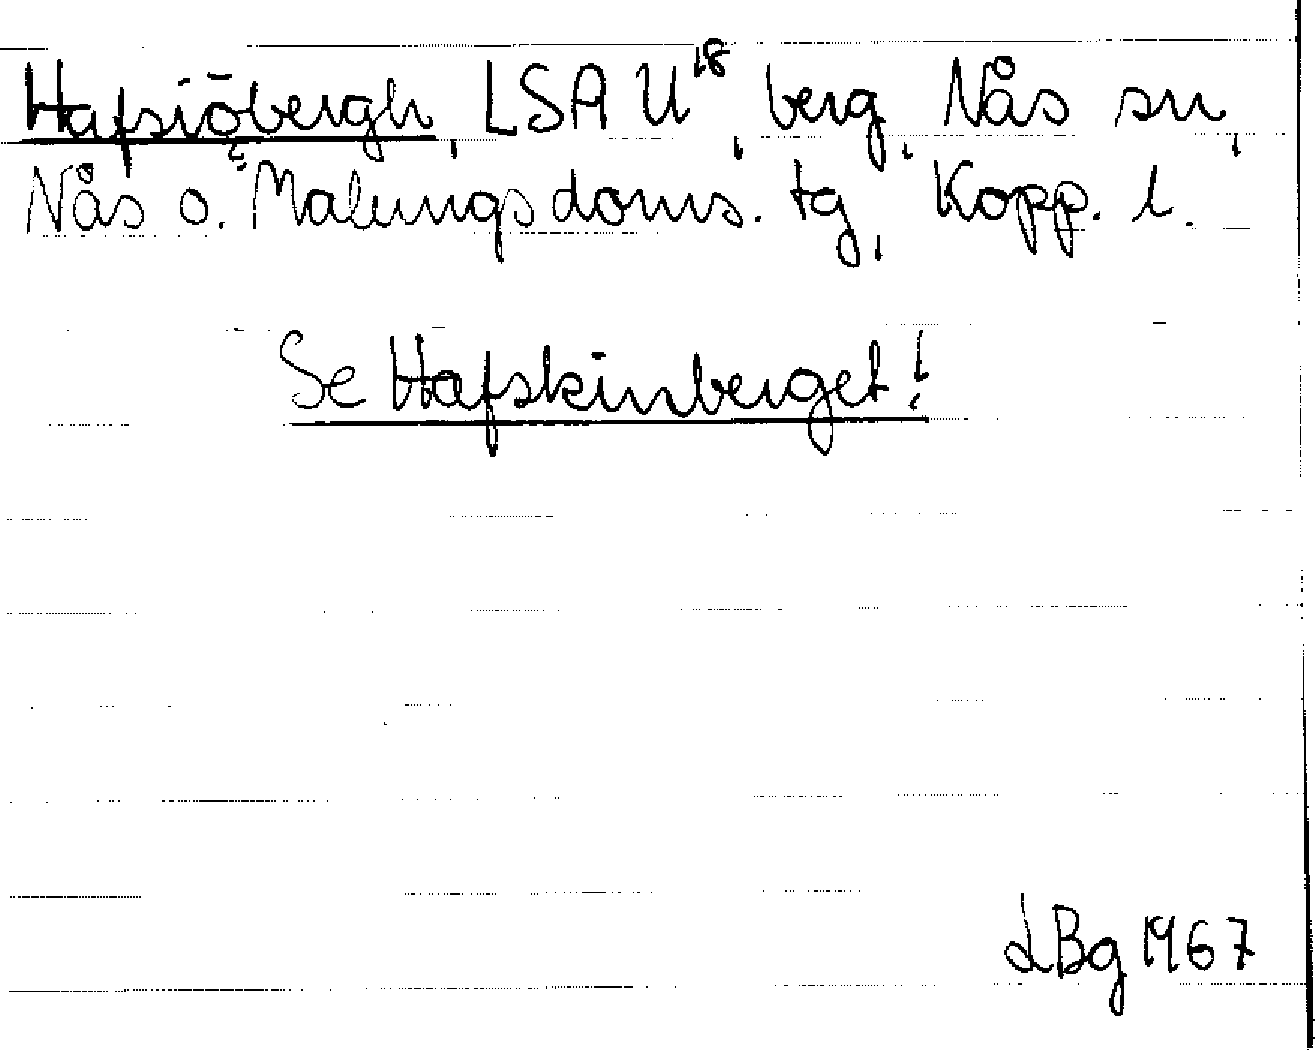 Hafsiöbergh, LSA U¹⁸, berg, Nås sn,
Nås o. Malungs doms. tg, Kopp. l.
Se Hafskinberget!
LBg 1967